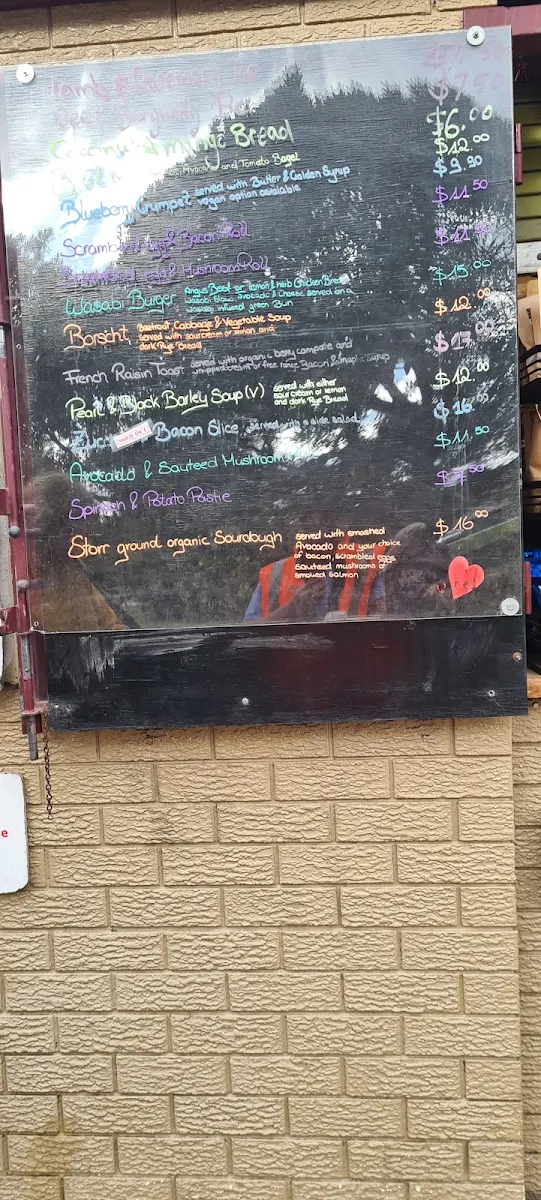 Lamb &
$7.50
Beef Burgundy
$7.50
Coconut & Bread
$6.00
Avocado and Tomato Bagel
$12.00
Blueberry Crumpet served with Butter & Golden Syrup
vegan option available
$9.90
Scrambled Egg & Bacon Roll
$11.50
Scrambled Egg & Mushroom Roll
$11.50
Wasabi Burger Angus Beef or Lemon & Herb Chicken Breast
Wasabi Slaw, Avocado & Cheese served on a
Wasabi infused green Bun
$15.00
Borscht, Beetroot Cabbage & Vegetable Soup
served with sour cream or lemon and
dark Rye Bread
$12.00
French Raisin Toast served with organic berry compote and
whipped cream or free range Bacon & maple syrup
$17.00
Pearl & Black Barley Soup (V) served with either
sour cream or lemon
and dark Rye Bread
$12.00
Zucc SOLD OUT Bacon Slice, served with a side salad
$16.00
Avocado & Sauteed Mushrooms
$11.50
Spinach & Potato Pastie
$7.50
Storr ground organic Sourdough served with smashed
Avocado and your choice
of bacon, scrambled eggs
sauteed mushrooms or
smoked salmon
$16.00
e